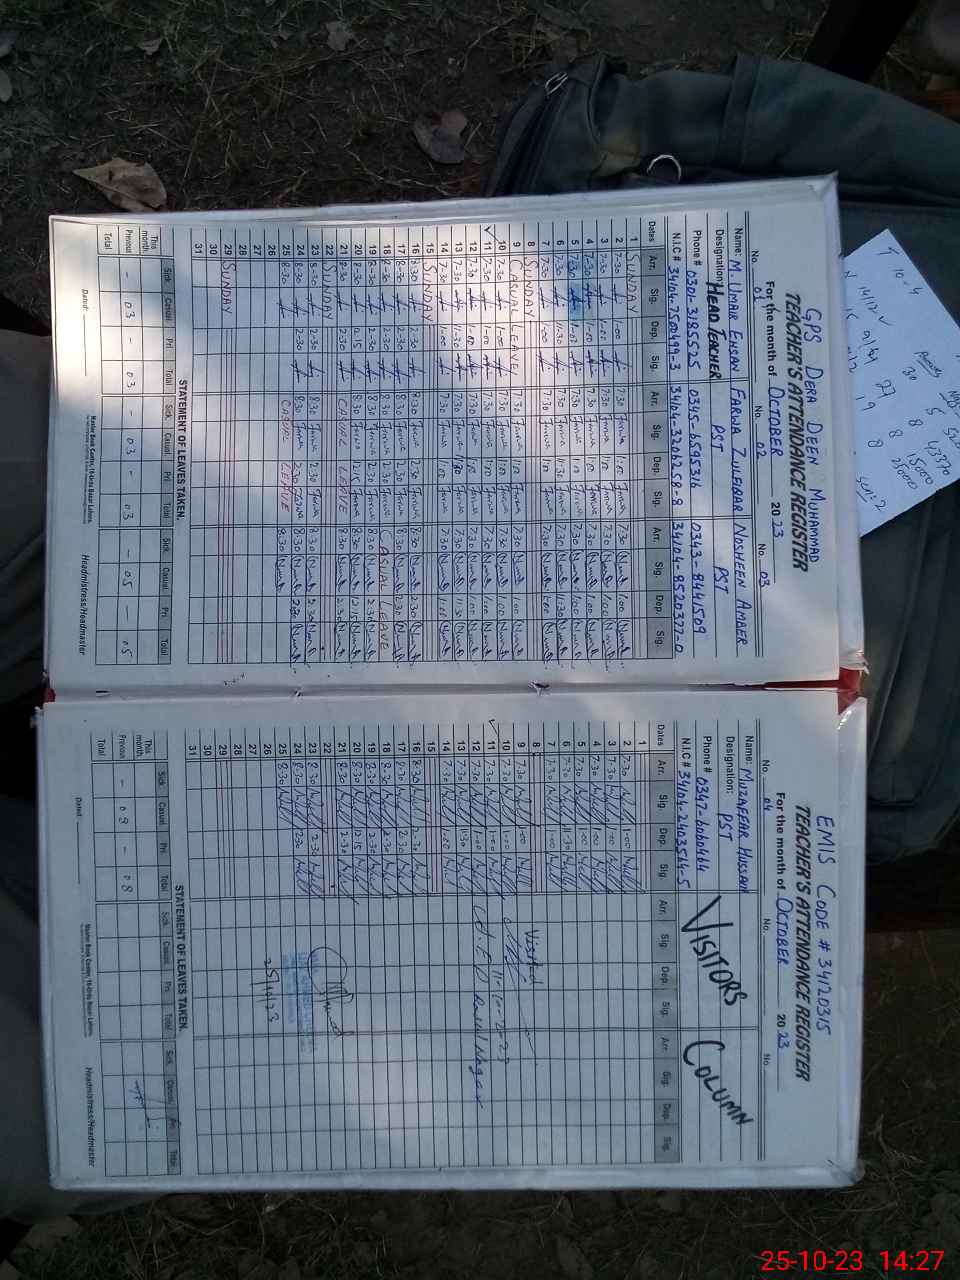 GPS DERA DEEN MUHAMMAD
TEACHER'S ATTENDANCE REGISTER
For the month of OCTOBER 20 23
No. 01 No. 02 No. 03
Name: M. UMAIR EHSAN FARWA ZULFIQAR NOSHEEN AMEER
Designation: HEAD TEACHER PST PST
Phone # 0301-3185525 0345-6595316 0343-8441509
N.I.C # 34104-7500499-3 34104-3206258-8 34104-8520377-0
Dates Arr. Sig. Dep. Sig. Arr. Sig. Dep. Sig. Arr. Sig. Dep. Sig.
1 SUNDAY
2 7:30 1:00 7:30 Farwa 1:00 Farwa 7:30 1:00
3 7:30 1:00 7:30 Farwa 1:00 Farwa 7:30 1:00
4 7:30 1:00 7:30 Farwa 1:00 Farwa 7:30 1:00
5 7:30 1:00 7:30 Farwa 1:00 Farwa 7:30 1:00
6 7:30 11:30 7:30 Farwa 11:30 Farwa 7:30 11:30
7 7:30 1:00 7:30 Farwa 1:00 Farwa 7:30 1:00
8 SUNDAY
9 CASUAL LEAVE 7:30 Farwa 1:00 Farwa 7:30 1:00
10 7:30 1:00 7:30 Farwa 1:00 Farwa 7:30 1:00
11 7:30 1:00 7:30 Farwa 1:00 Farwa 7:30 1:00
12 7:30 1:00 7:30 Farwa 1:00 Farwa 7:30 1:00
13 7:30 11:30 7:30 Farwa 11:30 Farwa 7:30 11:30
14 7:30 1:00 7:30 Farwa 1:00 Farwa 7:30 1:00
15 SUNDAY
16 8:30 2:30 8:30 Farwa 2:30 Farwa 8:30 2:30
17 8:30 2:30 8:30 Farwa 2:30 Farwa 8:30 2:30
18 8:30 2:30 8:30 Farwa 2:30 Farwa CASUAL LEAVE
19 8:30 2:30 8:30 Farwa 2:30 Farwa 8:30 2:30
20 8:30 12:15 8:30 Farwa 12:15 Farwa 8:30 12:15
21 8:30 2:30 CASUAL LEAVE 8:30 2:30
22 SUNDAY
23 8:30 2:30 8:30 Farwa 2:30 Farwa 8:30 2:30
24 8:30 2:30 8:30 Farwa 2:30 Farwa 8:30 2:30
25 8:30 CASUAL LEAVE 8:30
26
27
28
29 SUNDAY
30
31
STATEMENT OF LEAVES TAKEN.
Sick Casual Pri Total Sick Casual Pri Total Sick Casual Pri Total
This month.
Previous - 03 - 03 - 03 - 03 - 05 - 05
Total
Dated: Master Book Center, 16-Urdu Bazar Lahore. Headmistress/Headmaster
EMIS CODE # 34120315
TEACHER'S ATTENDANCE REGISTER
For the month of OCTOBER 20 23
No. 04 No. No
Name: MUZAFFAR HUSSAIN
Designation: PST
Phone # 0347-6060464
N.I.C # 34104-2403514-5
VISITORS COLUMN
Dates Arr. Sig. Dep. Sig. Arr. Sig. Dep. Sig. Arr. Sig. Dep. Sig.
1
2 7:30 1:00
3 7:30 1:00
4 7:30 1:00
5 7:30 1:00
6 7:30 11:30
7 7:30 1:00
8
9 7:30 1:00 Visited
10 7:30 1:00
11 7:30 1:00 11-10-23
12 7:30 1:00
13 7:30 11:30
14 7:30 1:00
15
16 8:30 2:30
17 8:30 2:30
18 8:30 2:30
19 8:30 2:30
20 8:30 12:15
21 8:30 2:30
22
23 8:30 2:30
24 8:30 2:30
25 8:30
26
27
28
29
30
31
STATEMENT OF LEAVES TAKEN.
Sick Casual Pri Total Sick Casual Pri Total Sick Casual Pri Total
This month.
Previous - 08 - 08
Total
Dated: Master Book Center, 16-Urdu Bazar Lahore. Headmistress/Headmaster
25-10-23 14:27